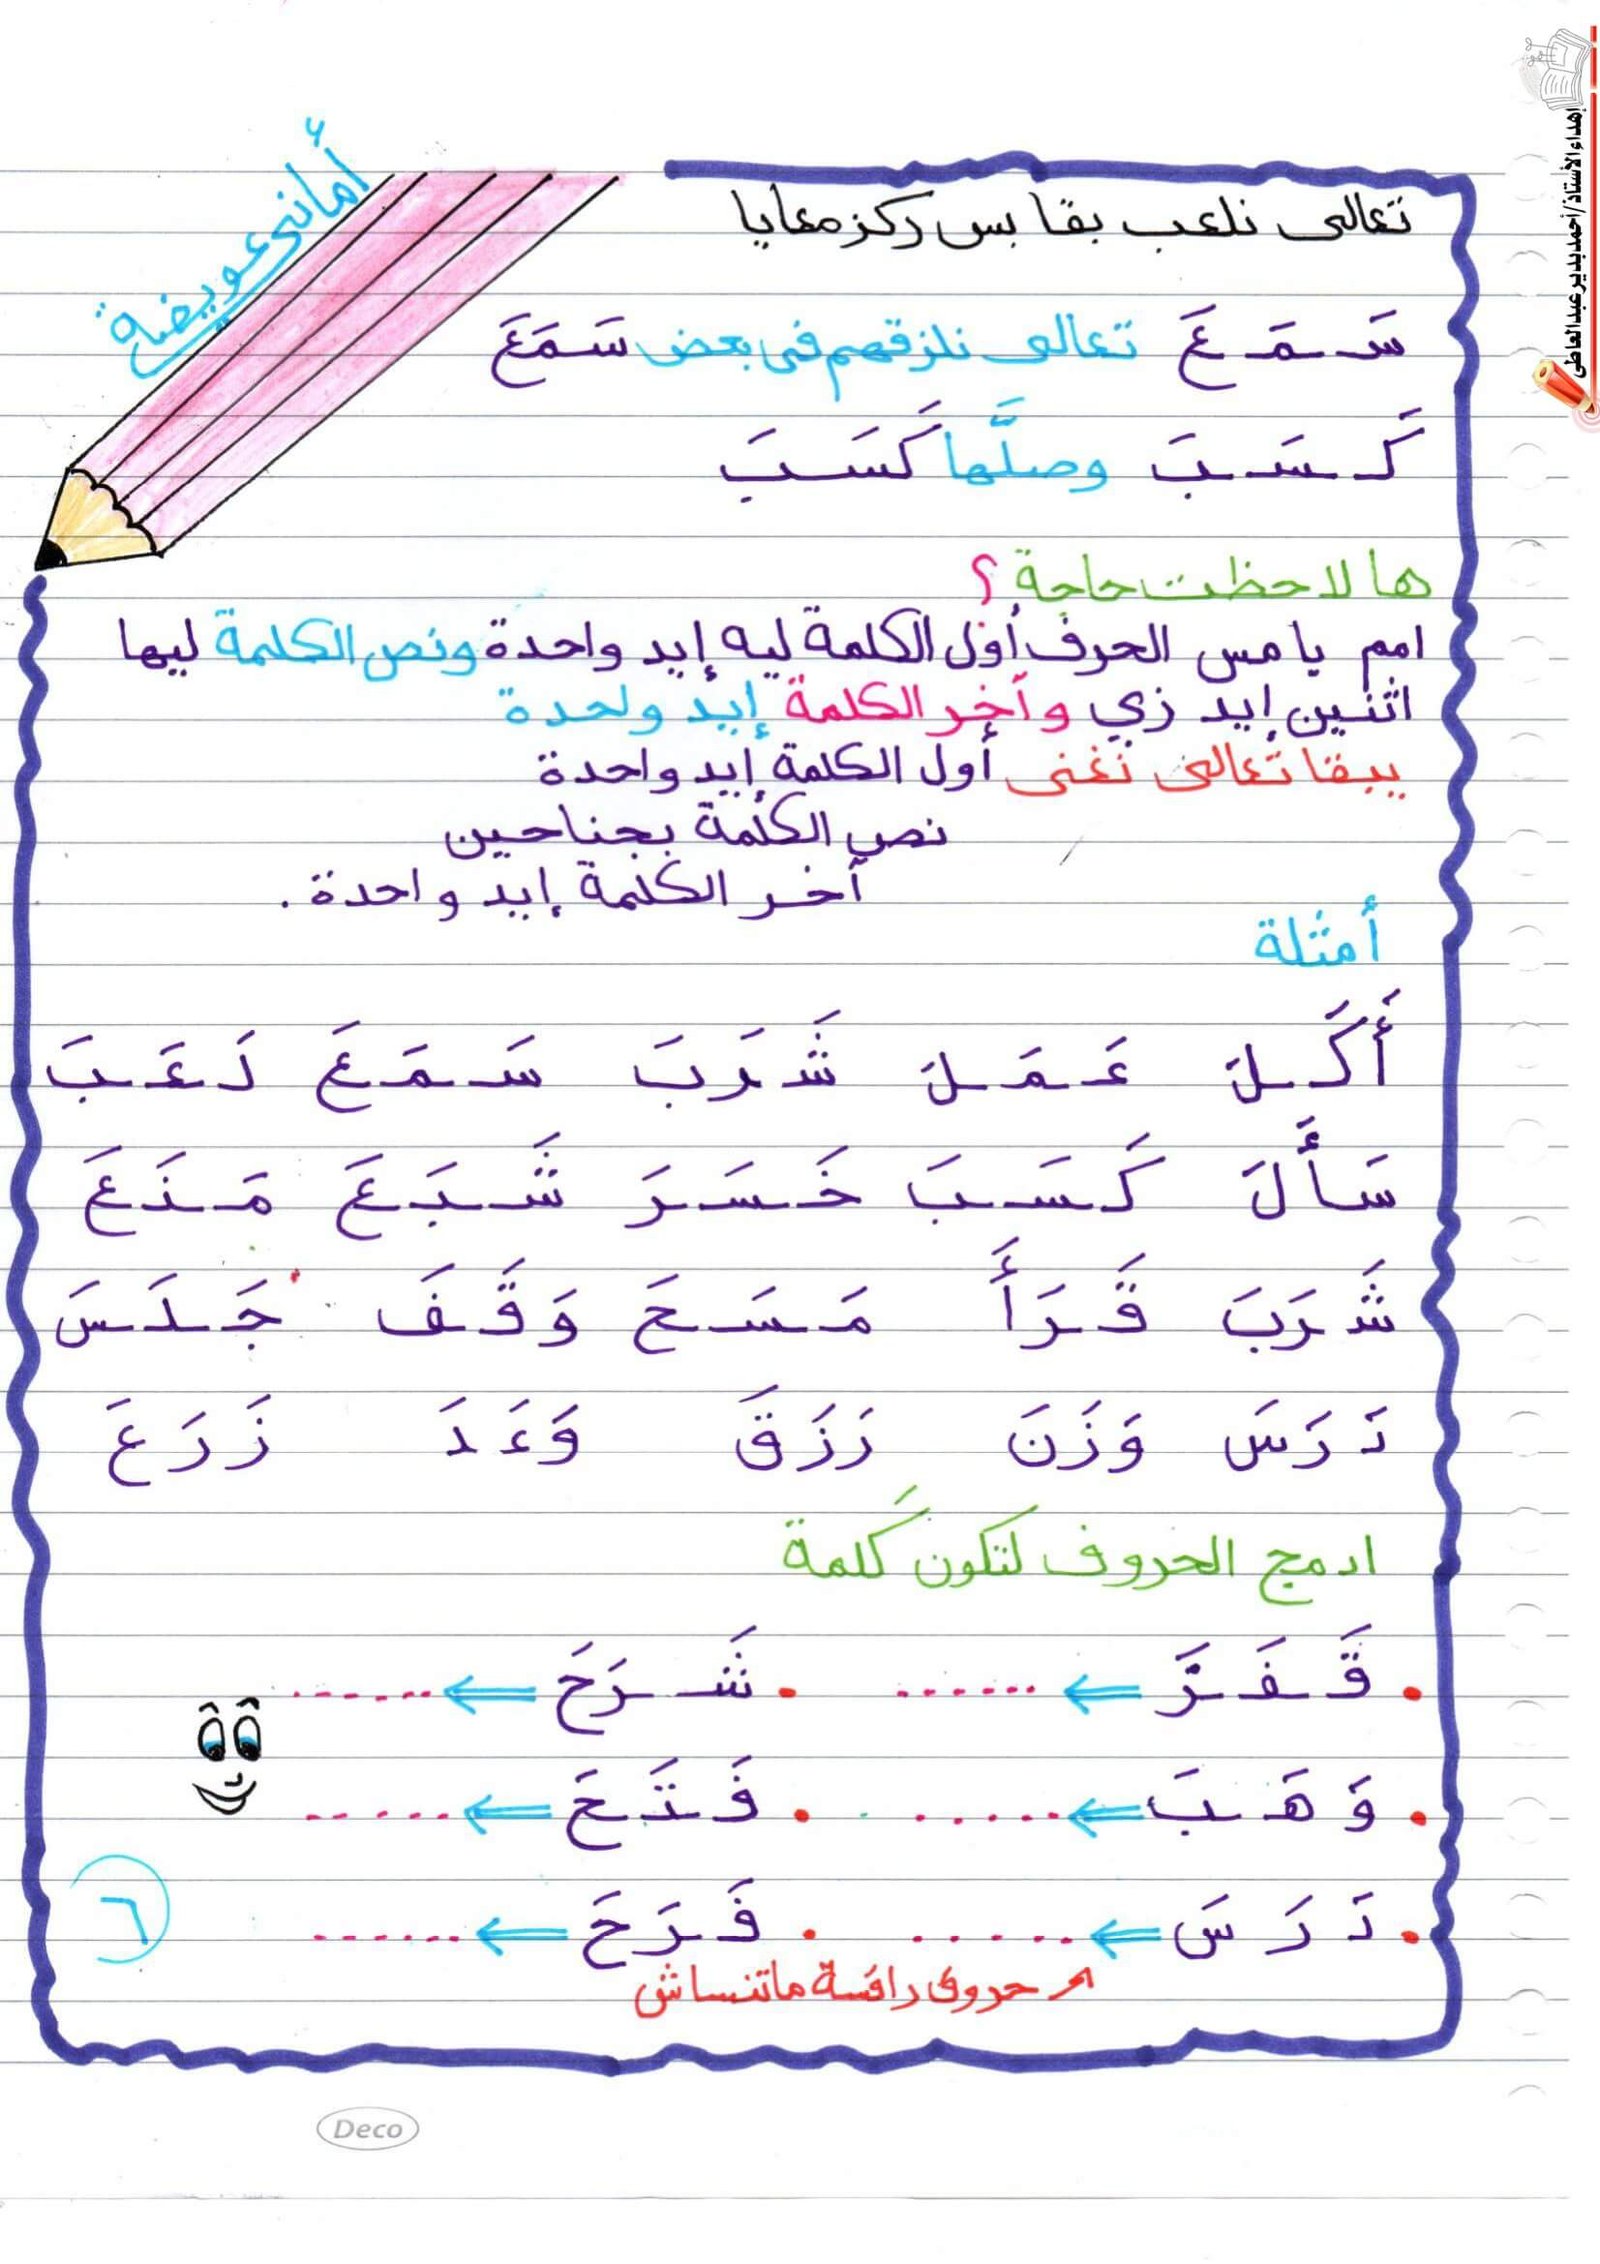 إهداء الأستاذ/أحمد بدير عبدالعاطى
أ/أمانى عويضة
تعالى نلعب بقا بس ركز معايا
سَـ ـمَـ ـعَ تعالى نلزقهم فى بعض سَمَعَ
كَـ ـسَـ ـبَ وصلَّها كَسَبَ
ها لاحظت حاجة ؟
امم يا مس الحرف أول الكلمة ليه إيد واحدة ونص الكلمة ليها
اثنين إيد زي وآخر الكلمة إيد واحدة
يبقا تعالى نغنى أول الكلمة إيد واحدة
نص الكلمة بجناحين
آخر الكلمة إيد واحدة .
أمثلة
أَ كَـ ـلَ عَـ ـمَـ ـلَ شَـ ـرَ بَ سَـ ـمَـ ـعَ لَـ ـعَـ ـبَ
سَـ ـأَ لَ كَـ ـسَـ ـبَ خَـ ـسَـ ـرَ شَـ ـبَـ ـعَ مَـ ـنَـ ـعَ
شَـ ـرَ بَ قَـ ـرَ أَ مَـ ـسَـ ـحَ وَ قَـ ـفَ جَـ ـلَـ ـسَ
دَ رَ سَ وَ زَ نَ رَ زَ قَ وَ عَـ ـدَ زَ رَ عَ
ادمج الحروف لتكون كلمة
• قَـ ـفَـ ـزَ ← ....... • شَـ ـرَ حَ ← .......
• وَ هَـ ـبَ ← ....... • فَـ ـتَـ ـحَ ← .......
• دَ رَ سَ ← ....... • فَـ ـرَ حَ ← .......
حروف رافسة ماتنساش
٦
Deco